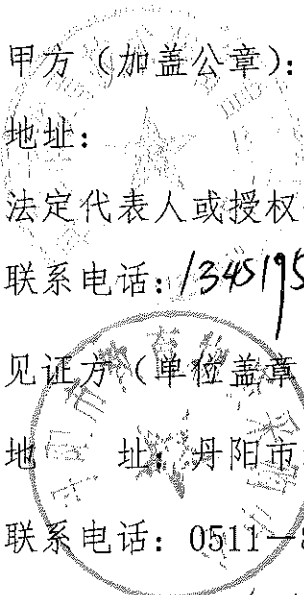 甲方（加盖公章）：
地址：
法定代表人或授权
联系电话：1345195
见证方（单位盖章
地 址：丹阳市
联系电话：0511－8